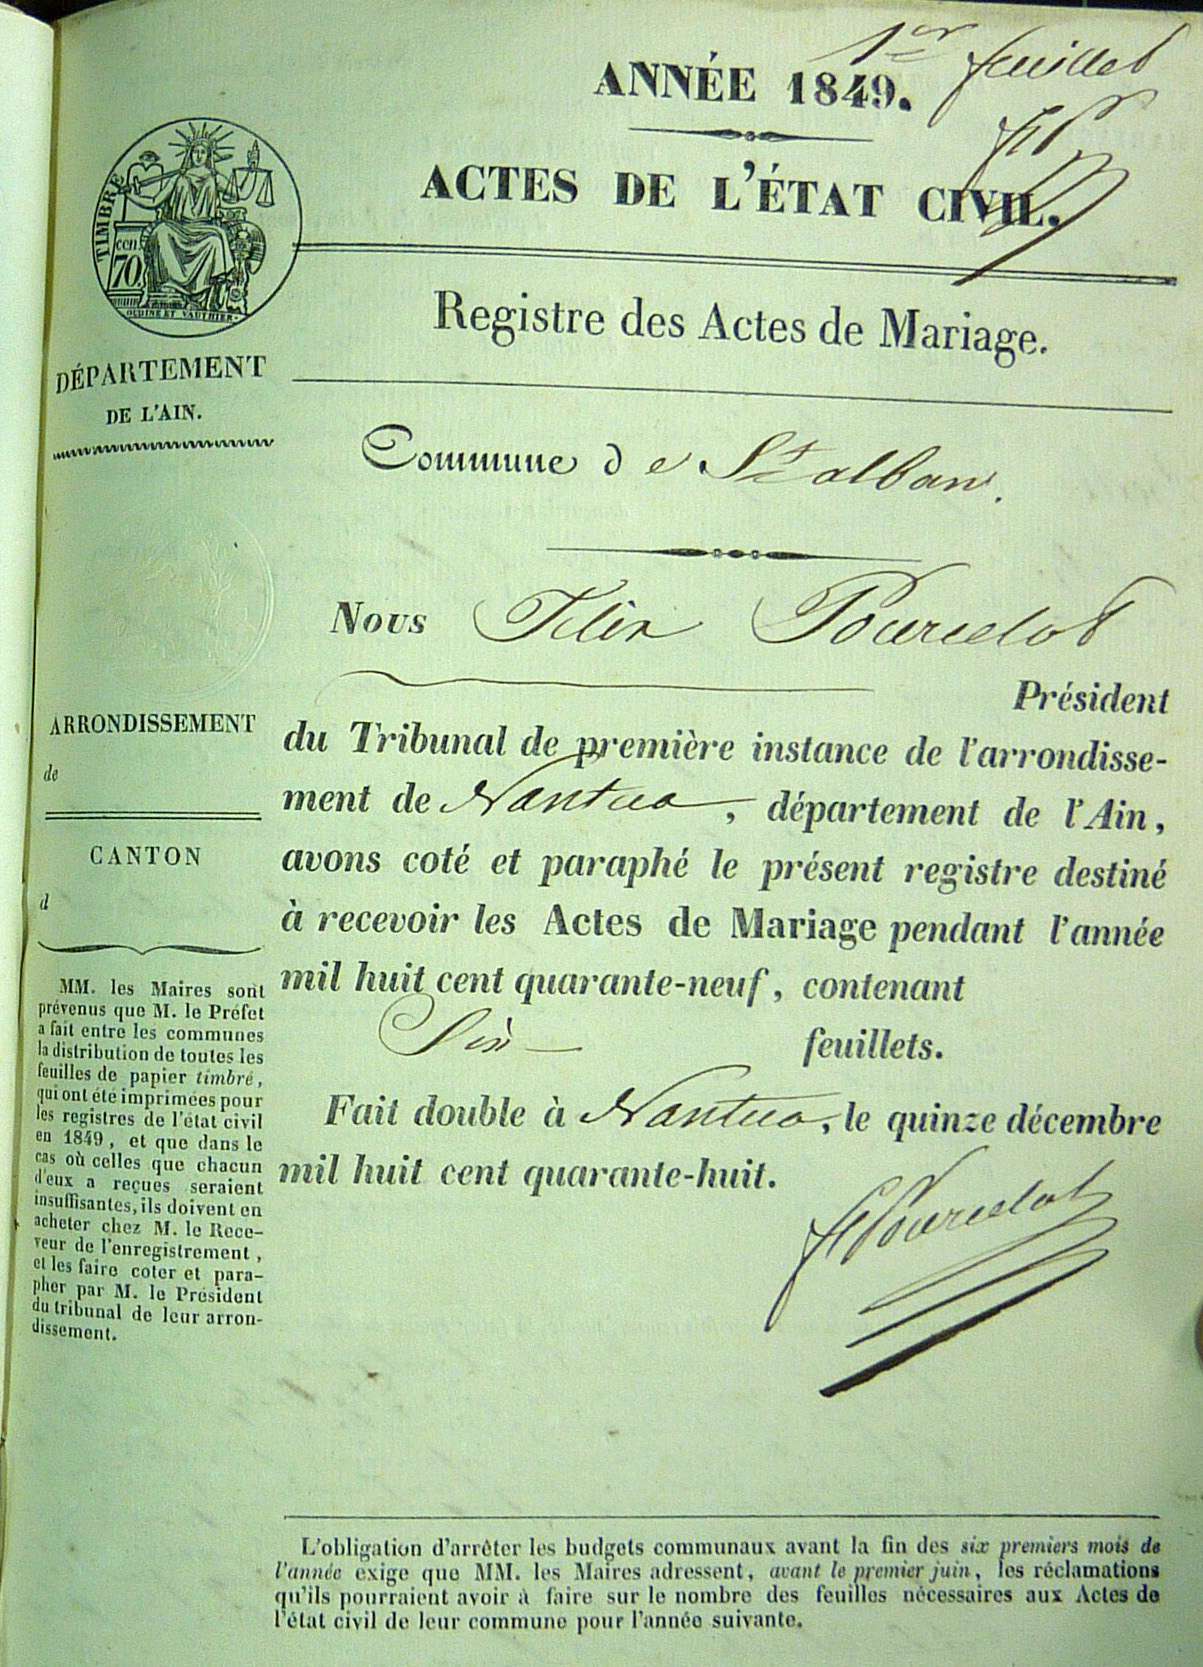 1er feuillet
ANNÉE 1849.
ACTES DE L'ÉTAT CIVIL.
TIMBRE
cen
70.
OUDINE ET VAUTHIER
Registre des Actes de Mariage.
DÉPARTEMENT
DE L'AIN.
Commune de St alban.
Nous Félix Pourcelot
Président
du Tribunal de première instance de l'arrondisse-
ment de Nantua, département de l'Ain,
avons coté et paraphé le présent registre destiné
à recevoir les Actes de Mariage pendant l'année
mil huit cent quarante-neuf, contenant
Six feuillets.
Fait double à Nantua, le quinze décembre
mil huit cent quarante-huit.
fPourcelot
ARRONDISSEMENT
de
CANTON
d
MM. les Maires sont
prévenus que M. le Préfet
a fait entre les communes
la distribution de toutes les
feuilles de papier timbré,
qui ont été imprimées pour
les registres de l'état civil
en 1849, et que dans le
cas où celles que chacun
d'eux a reçues seraient
insuffisantes, ils doivent en
acheter chez M. le Rece-
veur de l'enregistrement,
et les faire coter et para-
pher par M. le Président
du tribunal de leur arron-
dissement.
L'obligation d'arrêter les budgets communaux avant la fin des six premiers mois de
l'année exige que MM. les Maires adressent, avant le premier juin, les réclamations
qu'ils pourraient avoir à faire sur le nombre des feuilles nécessaires aux Actes de
l'état civil de leur commune pour l'année suivante.